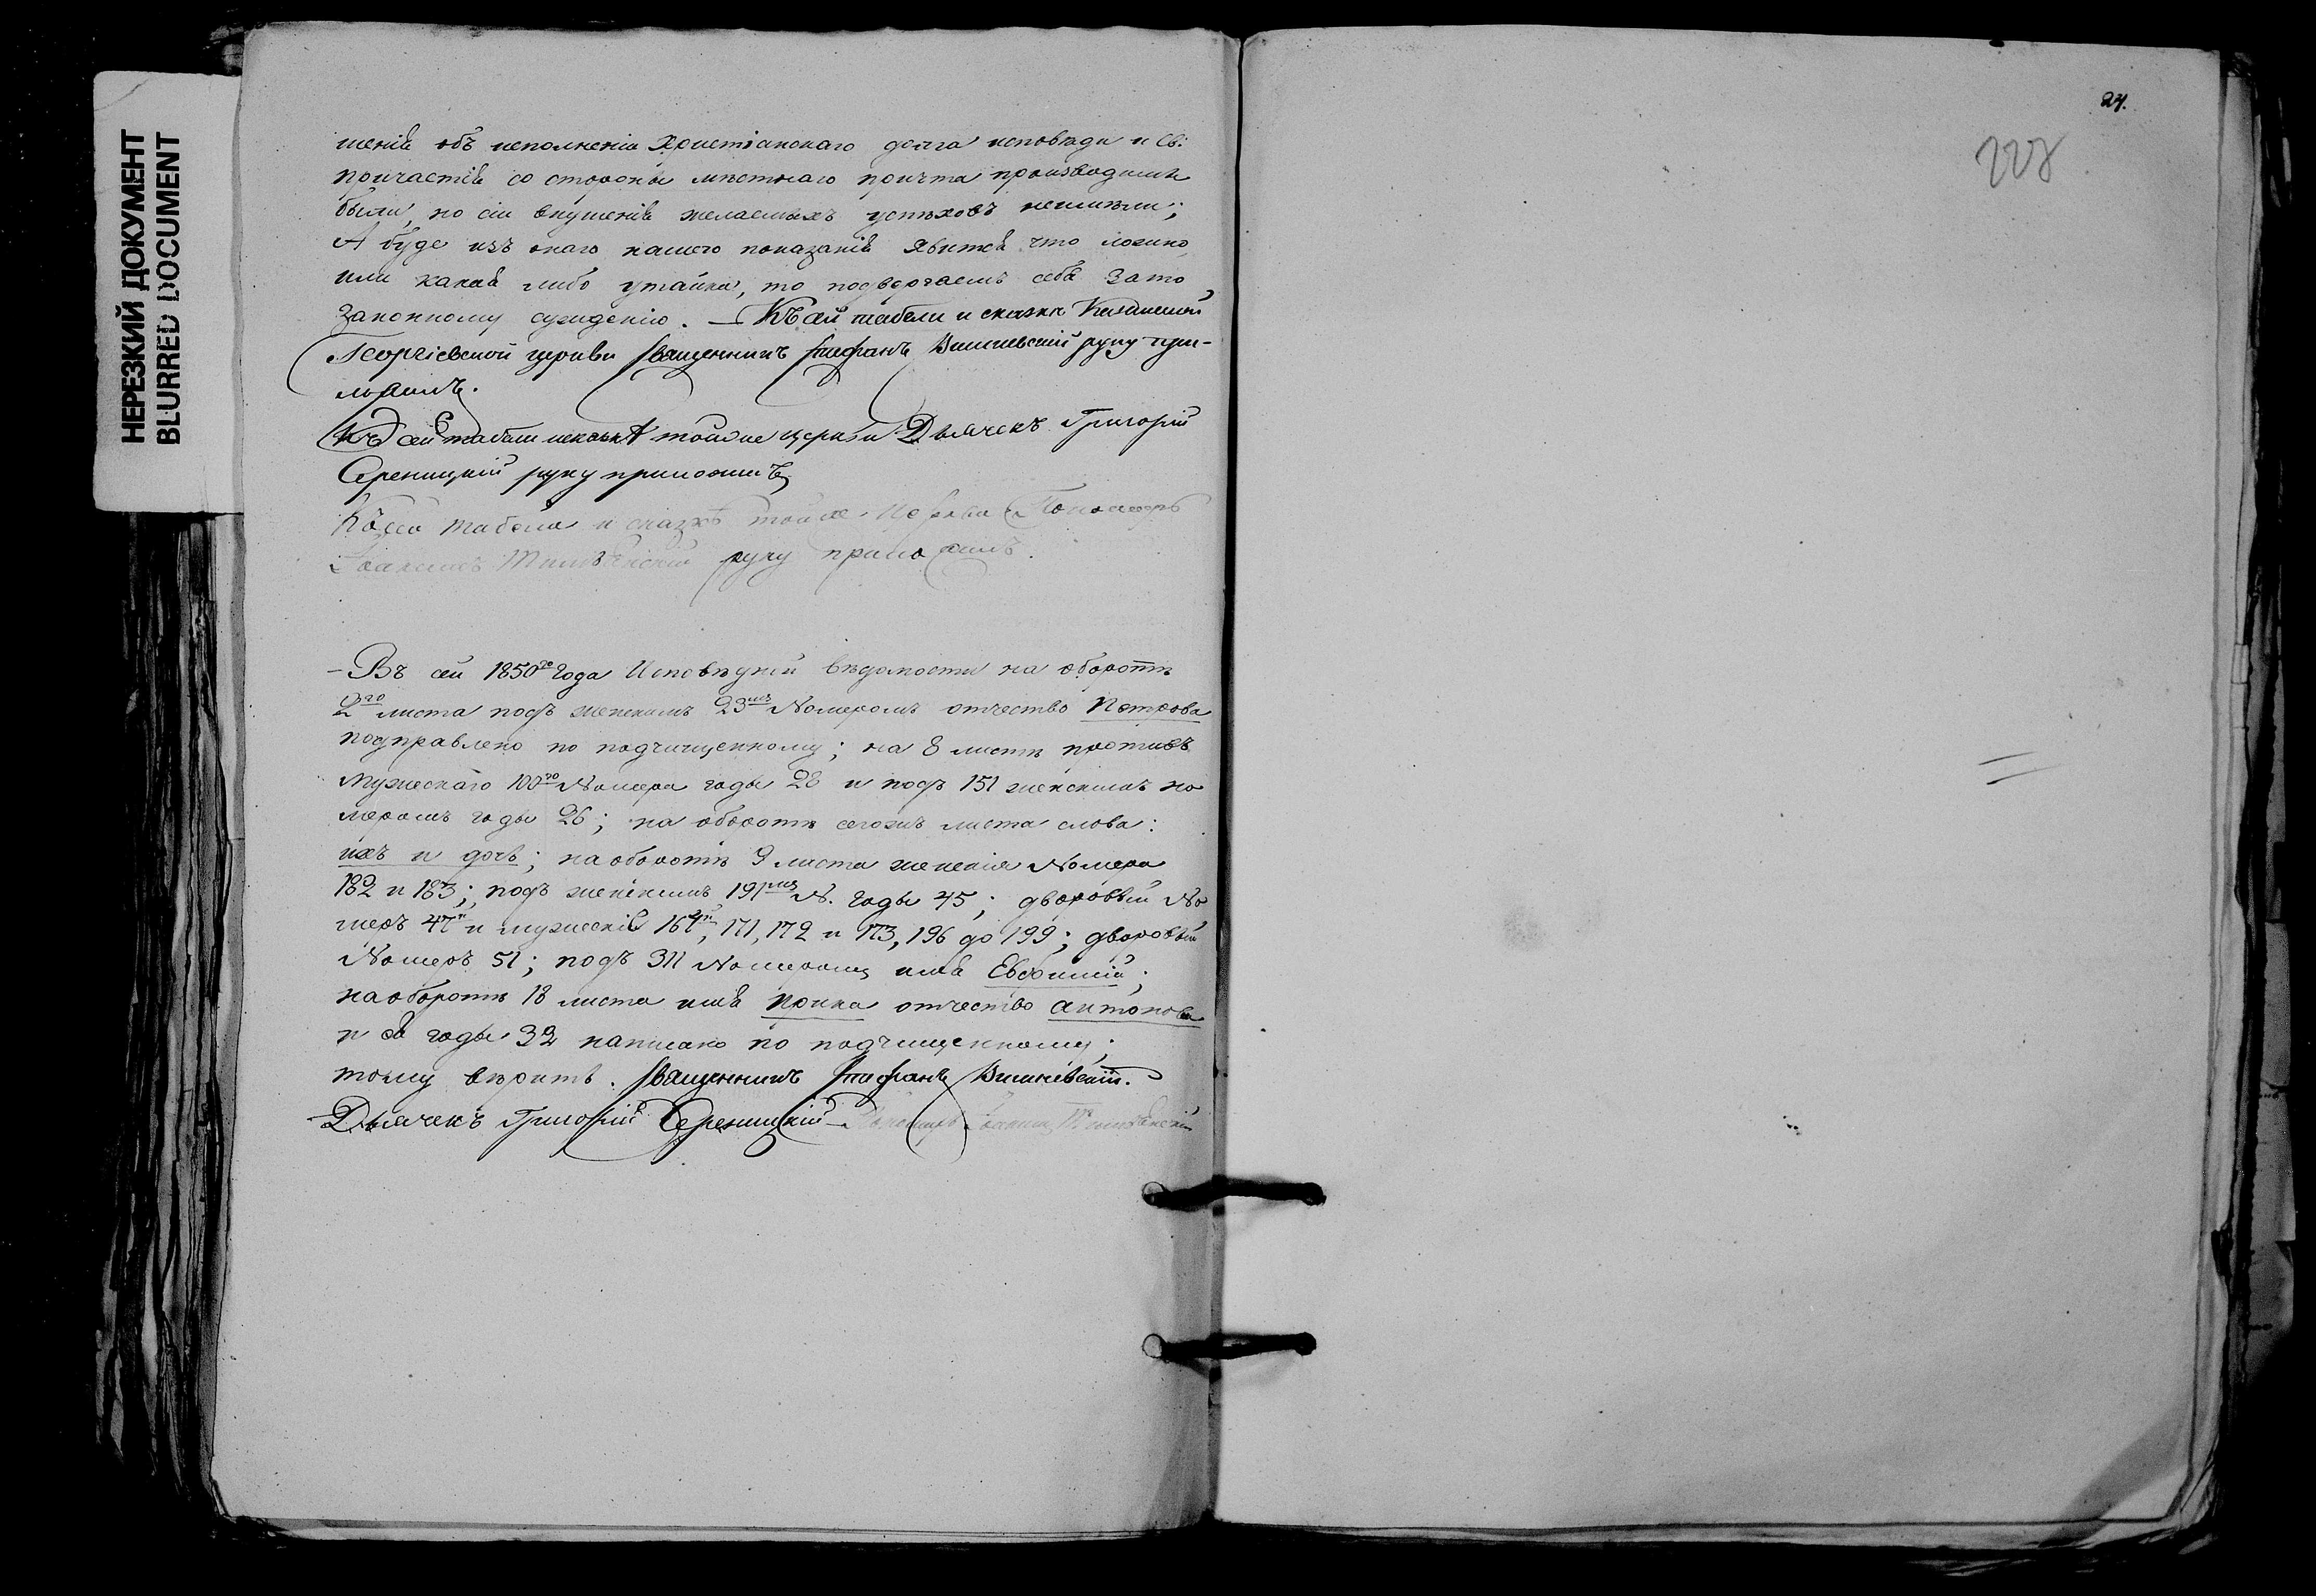 НЕРЕЗКИЙ ДОКУМЕНТ
BLURRED DOCUMENT
шенія объ исполненіи Христіанскаго долга исповѣди и Св:
причастія со стороны мѣстнаго причта производимы
были, но сіи внушенія желаемыхъ успѣховъ неимѣли;
А буде изъ онаго нашего показанія явится что ложно,
или какая либо утайка, то подвергаемъ себя за то
законному сужденію. — Къ сей табели и сказкѣ
Георгіевской церкви священникъ Стефанъ Вишневскій руку при-
ложилъ.
Къ сей табели исказкѣ тойже церкви Дьячекъ Григорій
Сереницкій руку приложилъ
Къ сей табели и сказкѣ тойже Церкви Пономарь
Іоакимъ руку приложилъ.
— Въ сей 1850го года Исповѣдной вѣдомости на оборотѣ
2го листа подъ женскимъ 23мъ Номеромъ отчество Петрова
подправлено по подчищенному; на 8 листѣ противъ
Мужескаго 100го Номера годы 28 и подъ 151 женскимъ но
меромъ годы 26; на оборотѣ сегожъ листа слова:
ихъ и дочь; на оборотѣ 9 листа женскія Номера
182 и 183; подъ женскимъ 191мъ N. годы 45; дворовый Но
меръ 47й и мужескія 164й, 171, 172 и 173, 196 до 199; дворовый
Номеръ 51; подъ 311 Номеромъ имя Евфимій;
на оборотѣ 18 листа имя Ирина отчество Антонова
и ея годы 32 написано по подчищенному;
тому вѣрить. Священникъ Стефанъ Вишневскій.
— Дьячекъ Григорій Сереницкій — Пономарь Іоакимъ
24.
228